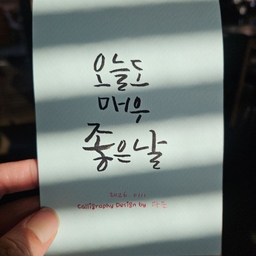 오늘도
매우
좋은날
Calligraphy Design by